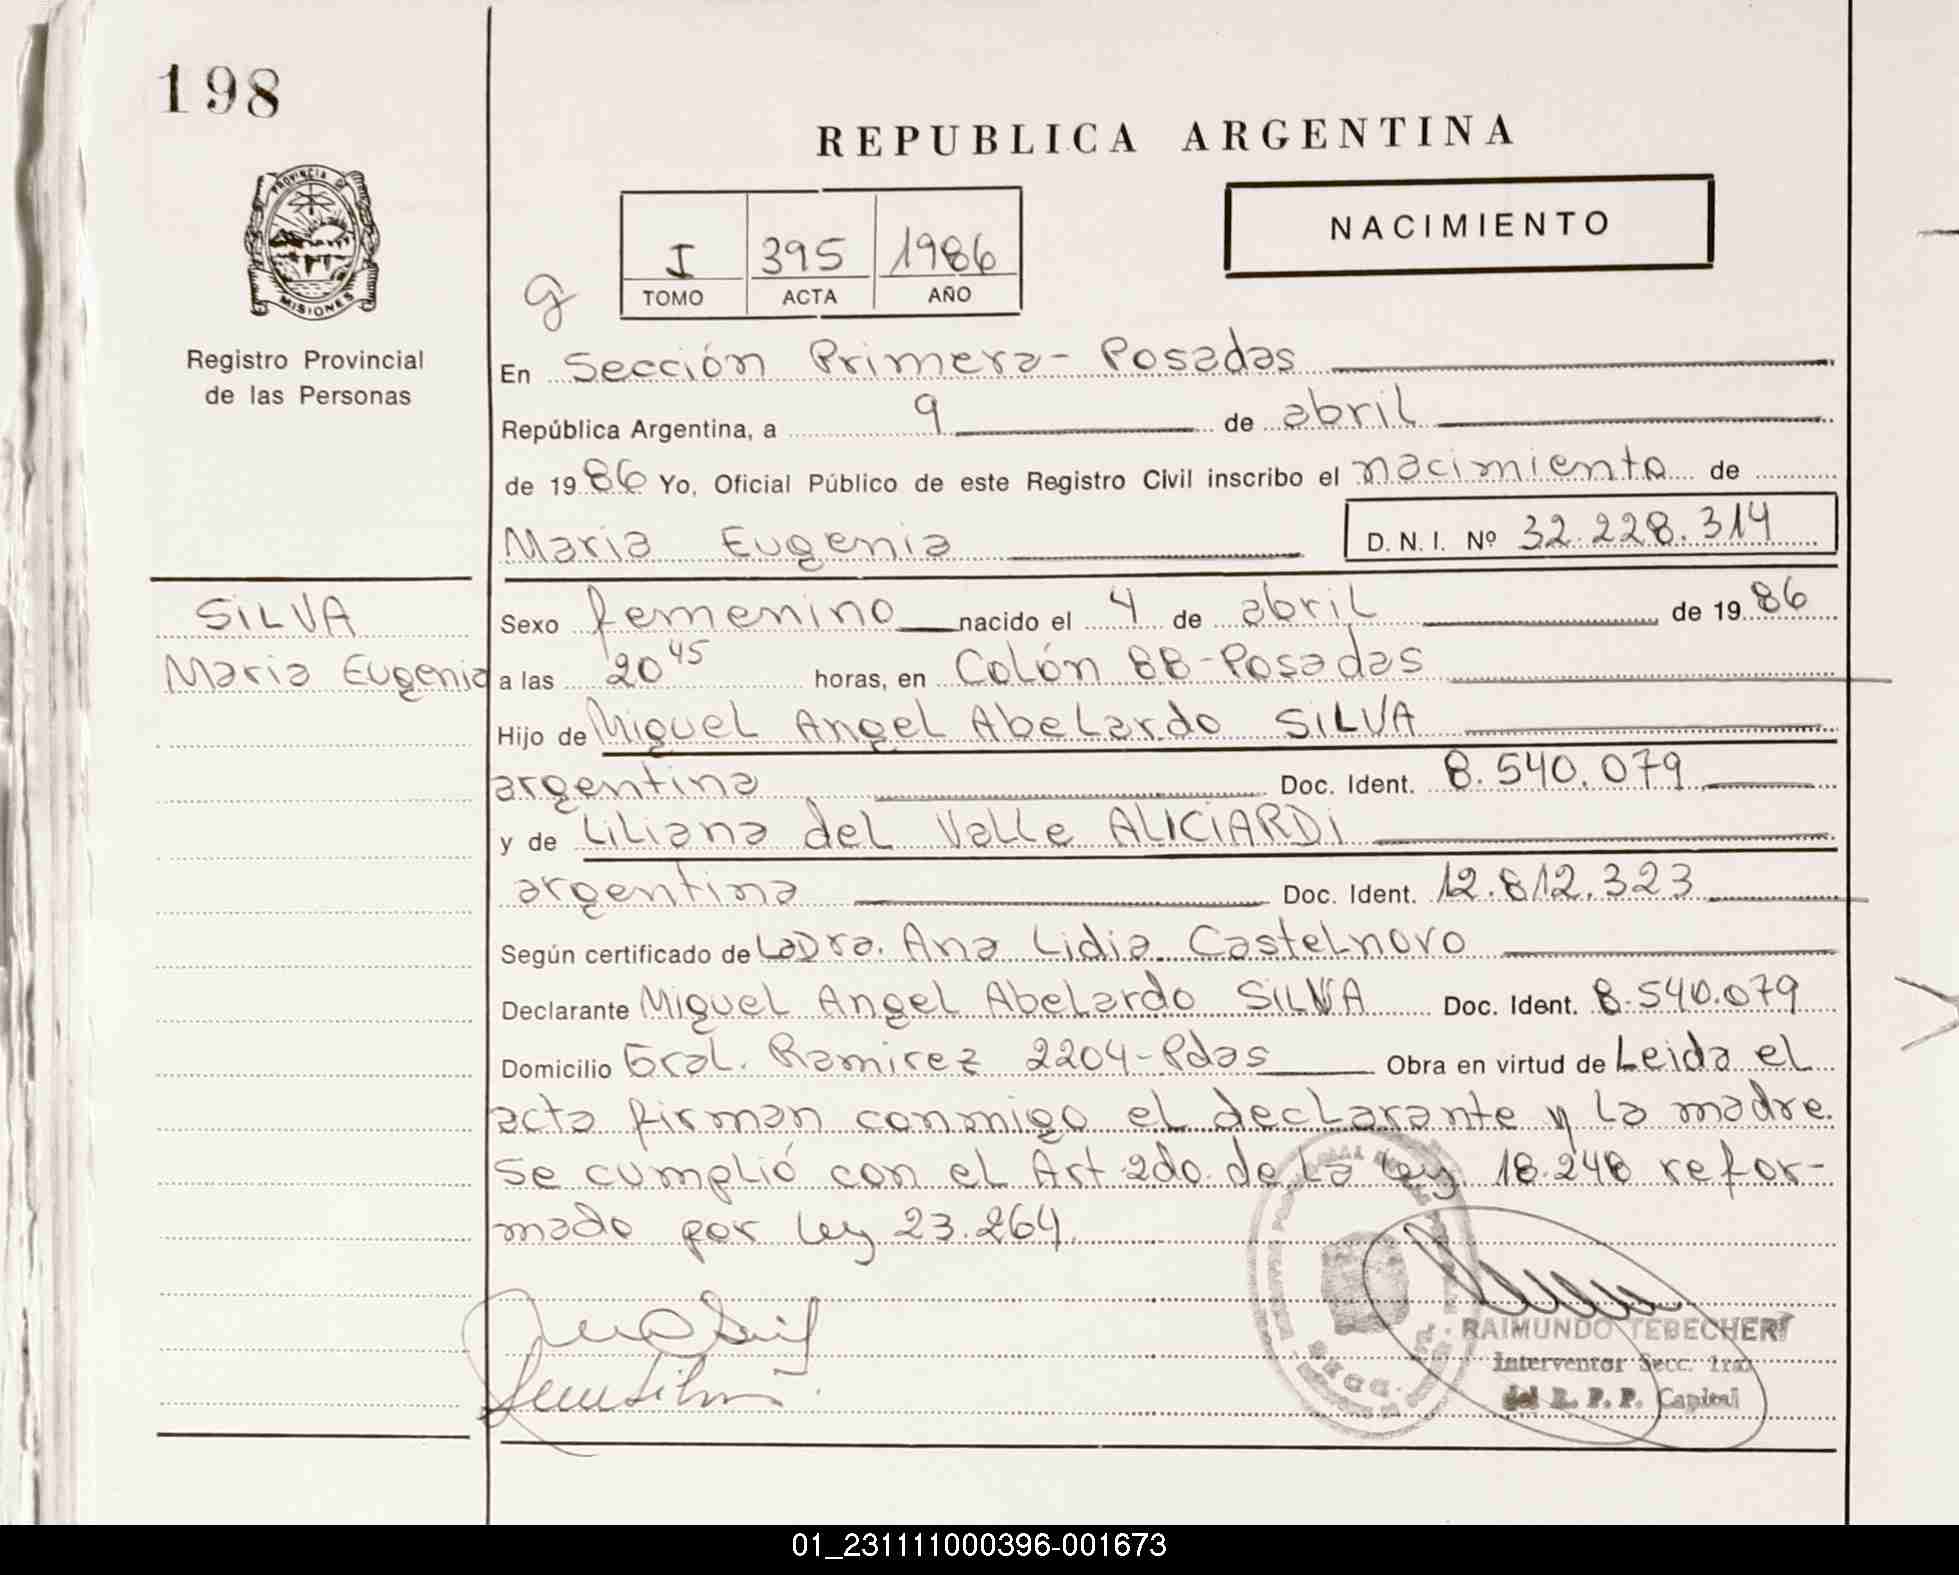 198
REPUBLICA ARGENTINA
PROVINCIA D
MISIONES
Registro Provincial
de las Personas
I 395 1986
TOMO ACTA AÑO
NACIMIENTO
g
En Sección Primera - Posadas
República Argentina, a 9 de abril
de 1986 Yo, Oficial Público de este Registro Civil inscribo el nacimiento de
Maria Eugenia D. N. I. Nº 32.228.314
SILVA
Maria Eugenia
Sexo femenino nacido el 4 de abril de 1986
a las 20 45 horas, en Colón 88 - Posadas
Hijo de Miguel Angel Abelardo SILVA
argentina Doc. Ident. 8.540.079
y de Liliana del Valle ALICIARDI
argentina Doc. Ident. 12.812.323
Según certificado de La Dra. Ana Lidia Castelnovo
Declarante Miguel Angel Abelardo SILVA Doc. Ident. 8.540.079
Domicilio Gral. Ramirez 2204 - Pdas Obra en virtud de Leida el
acta firman conmigo el declarante y la madre.
Se cumplió con el Art 2do. de la Ley 18.248 refor-
mado por Ley 23.264.
RAIMUNDO TEBECHERI
Interventor Secc. 1ra
del R. P. P. Capital
01_231111000396-001673